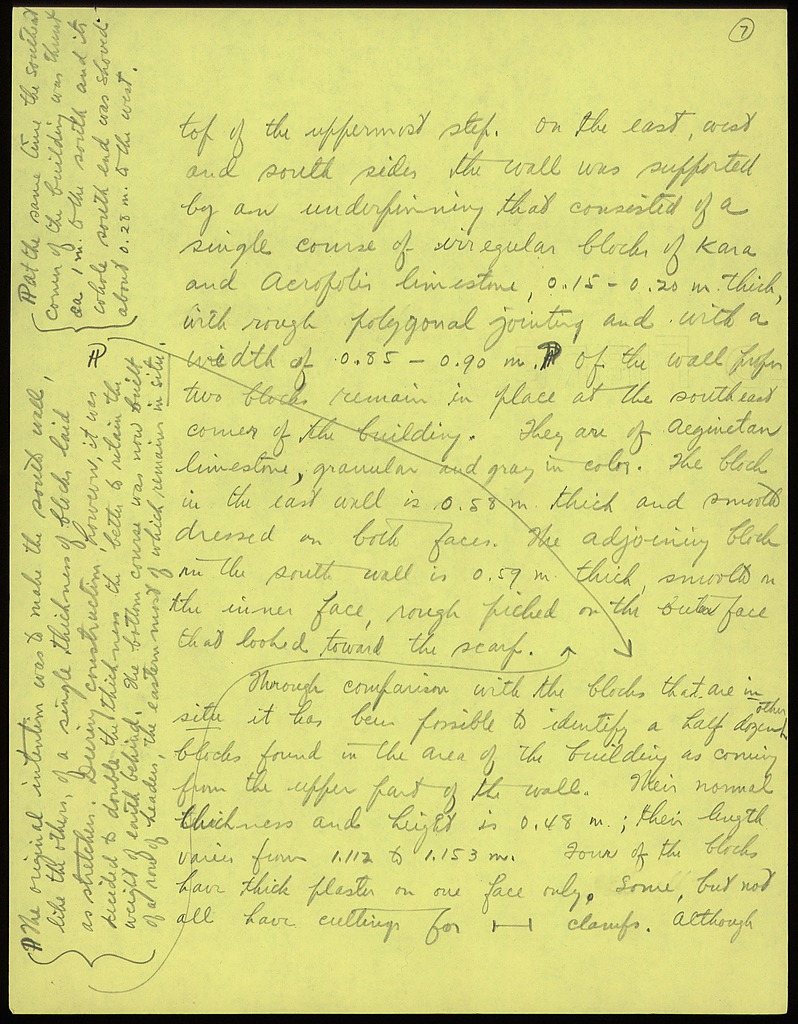 7
top of the uppermost step. On the east, west
and south sides the wall was supported
by an underpinning that consisted of a
single course of irregular blocks of Kara
and Acropolis limestone, 0.15 - 0.20 m. thick,
with rough polygonal jointing and with a
width of 0.85 - 0.90 m. ¶ Of the wall proper
two blocks remain in place at the southeast
corner of the building. They are of Aeginetan
limestone, granular and gray in color. The block
in the east wall is 0.58 m. thick and smooth
dressed on both faces. The adjoining block
in the south wall is 0.59 m. thick, smooth on
the inner face, rough picked on the outer face
that looked toward the scarp.
Through comparison with the blocks that are in
situ it has been possible to identify a half dozen other
blocks found in the area of the building as coming
from the upper part of the wall. Their normal
thickness and height is 0.48 m.; their length
varies from 1.112 to 1.153 m. Four of the blocks
have thick plaster on one face only. Some, but not
all have cuttings for |—| clamps. Although
¶ The original intention was to make the south wall,
like the others, of a single thickness of blocks laid
as stretchers. During construction, however, it was
decided to double the thickness the better to retain the
weight of earth behind. The bottom course was now built
of a row of headers, the eastern most of which remains in situ.
¶ At the same time the southeast
corner of the building was thrust
ca. 1 m. to the south and its
whole south end was shoved
about 0.28 m. to the west.
¶